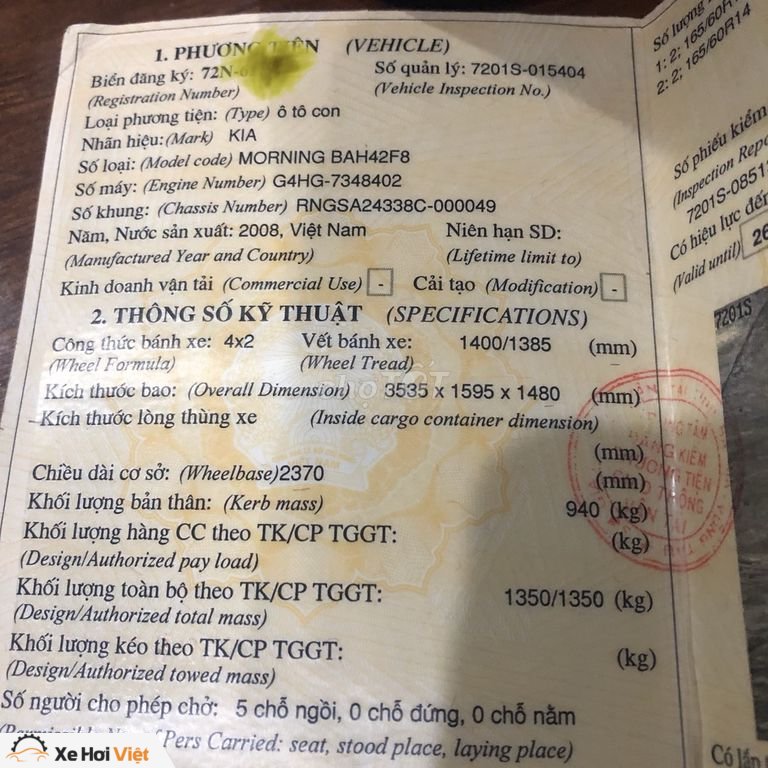 1. PHƯƠNG TIỆN (VEHICLE)
Biển đăng ký: 72N- Số quản lý: 7201S-015404
(Registration Number) (Vehicle Inspection No.)
Loại phương tiện: (Type) ô tô con
Nhãn hiệu: (Mark) KIA
Số loại: (Model code) MORNING BAH42F8
Số máy: (Engine Number) G4HG-7348402
Số khung: (Chassis Number) RNGSA24338C-000049
Năm, Nước sản xuất: 2008, Việt Nam Niên hạn SD:
(Manufactured Year and Country) (Lifetime limit to)
Kinh doanh vận tải (Commercial Use) - Cải tạo (Modification) -
2. THÔNG SỐ KỸ THUẬT (SPECIFICATIONS)
Công thức bánh xe: 4x2 Vết bánh xe: 1400/1385 (mm)
(Wheel Formula) (Wheel Tread)
Kích thước bao: (Overall Dimension) 3535 x 1595 x 1480 (mm)
Kích thước lòng thùng xe (Inside cargo container dimension)
(mm)
Chiều dài cơ sở: (Wheelbase) 2370 (mm)
Khối lượng bản thân: (Kerb mass) 940 (kg)
Khối lượng hàng CC theo TK/CP TGGT: (kg)
(Design/Authorized pay load)
Khối lượng toàn bộ theo TK/CP TGGT: 1350/1350 (kg)
(Design/Authorized total mass)
Khối lượng kéo theo TK/CP TGGT: (kg)
(Design/Authorized towed mass)
Số người cho phép chở: 5 chỗ ngồi, 0 chỗ đứng, 0 chỗ nằm
Pers Carried: seat, stood place, laying place)
Số lượng
1: 2; 165/60R14
2: 2; 165/60R14
Số phiếu kiểm
(Inspection Repo
7201S-0851
Có hiệu lực đến
(Valid until) 26
7201S
Có lắp
ĐĂNG KIỂM
Xe Hơi Việt